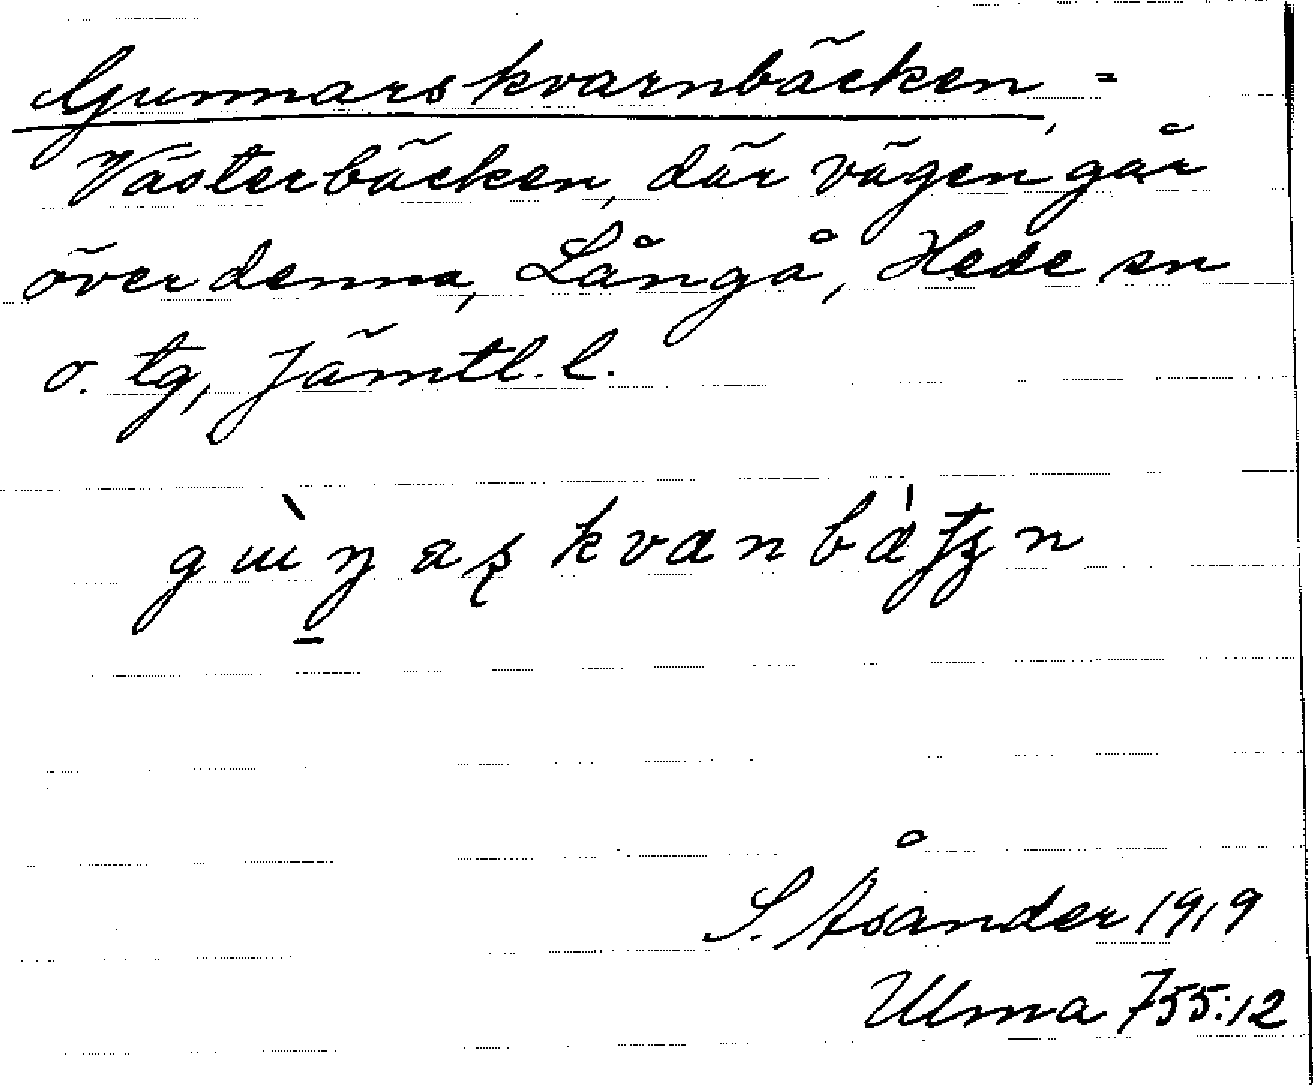 Gunnarskvarnbäcken, =
Västerbäcken, där vägen går
över denna, Långå, Hede sn
o. tg, Jämtl. l.
S. Åsander 1919
Ulma 755:12